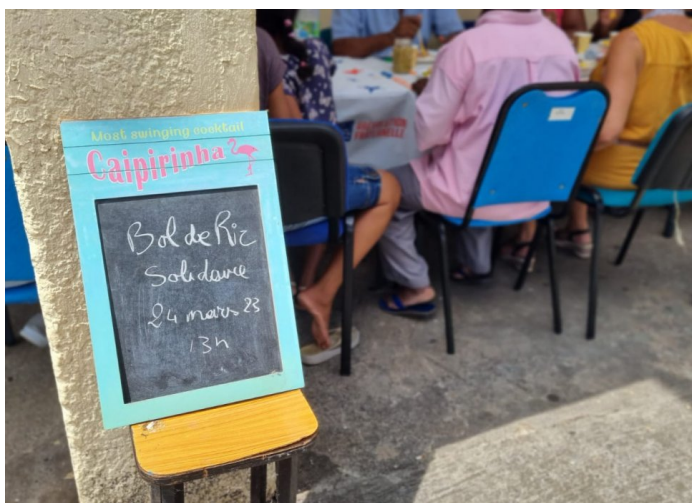 Most swinging cocktail
Caipirinha
Bol de Riz
Solidaire
24 mars 23
13h